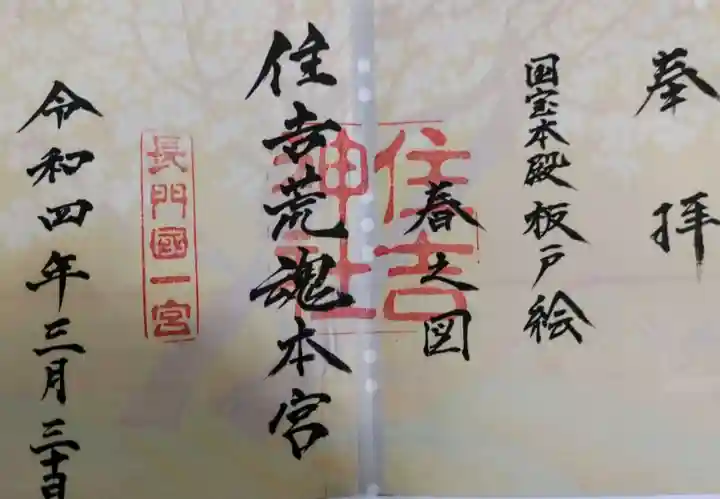 奉拝
国宝本殿板戸絵
春之図
住吉神社
住吉荒魂本宮
長門國一宮
令和四年三月三十日